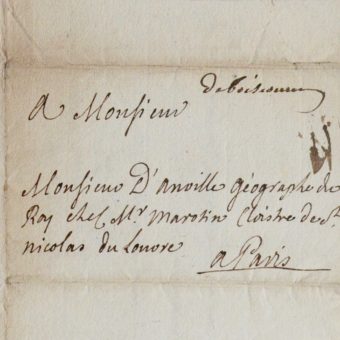 A Monsieur
Monsieur D'anville géographe du
Roy chés Mr Marotin Cloistre de St
nicolas du Louvre
a Paris